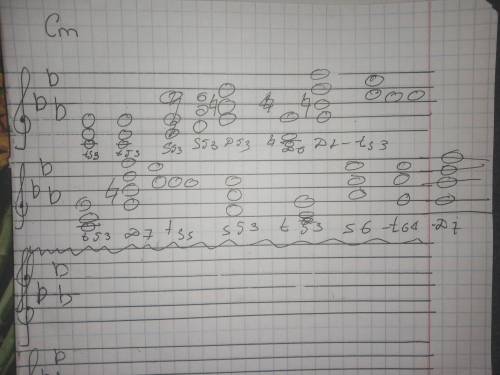 Cm
t53 t53 S53 S53 D53 D6 D7-t53
t53 D7 t53 S53 t53 S6 -t64 -D7